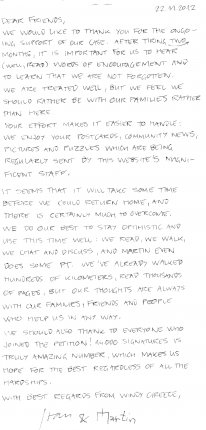 22.11.2012
DEAR FRIENDS,
WE WOULD LIKE TO THANK YOU FOR THE ONGO-
ING SUPPORT OF OUR CASE. AFTER TIRING TWO
MONTHS, IT IS IMPORTANT FOR US TO HEAR
(WELL, READ) WORDS OF ENCOURAGEMENT AND
TO LEARN THAT WE ARE NOT FORGOTTEN.
WE ARE TREATED WELL, BUT WE FEEL WE
SHOULD RATHER BE WITH OUR FAMILIES RATHER
THAN HERE.
YOUR EFFORT MAKES IT EASIER TO HANDLE:
WE ENJOY YOUR POSTCARDS, COMMUNITY NEWS,
PICTURES AND PUZZLES WHICH ARE BEING
REGULARLY SENT BY THIS WEBSITE'S MAGNI-
FICENT STAFF.
IT SEEMS THAT IT WILL TAKE SOME TIME
BEFORE WE COULD RETURN HOME, AND
THERE IS CERTAINLY MUCH TO OVERCOME.
WE DO OUR BEST TO STAY OPTIMISTIC AND
USE THIS TIME WELL: WE READ, WE WALK,
WE CHAT AND DISCUSS, AND MARTIN EVEN
DOES SOME PT. WE'VE ALREADY WALKED
HUNDREDS OF KILOMETERS, READ THOUSANDS
OF PAGES, BUT OUR THOUGHTS ARE ALWAYS
WITH OUR FAMILIES, FRIENDS AND PEOPLE
WHO HELP US IN ANY WAY.
WE SHOULD ALSO THANK TO EVERYONE WHO
JOINED THE PETITION! SIGNATURES IS
TRULY AMAZING NUMBER, WHICH MAKES US
HOPE FOR THE BEST REGARDLESS OF ALL THE
HARDSHIPS.
WITH BEST REGARDS FROM WINDY GREECE,
Ivan & Martin